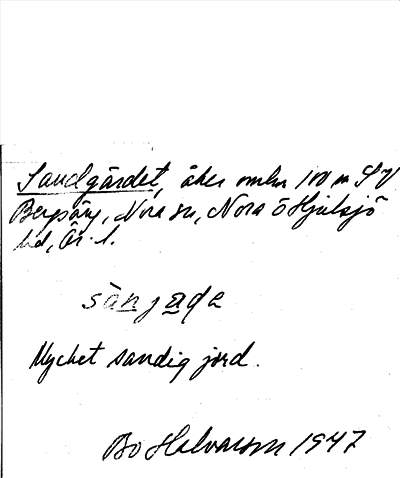 Sandgärdet, åker omkr 100 m SV
Bergsäng, Nora sn, Nora o Hjulsjö
hd, Ör. l.
sànjade
Mycket sandig jord.
Bo Halvarson 1947